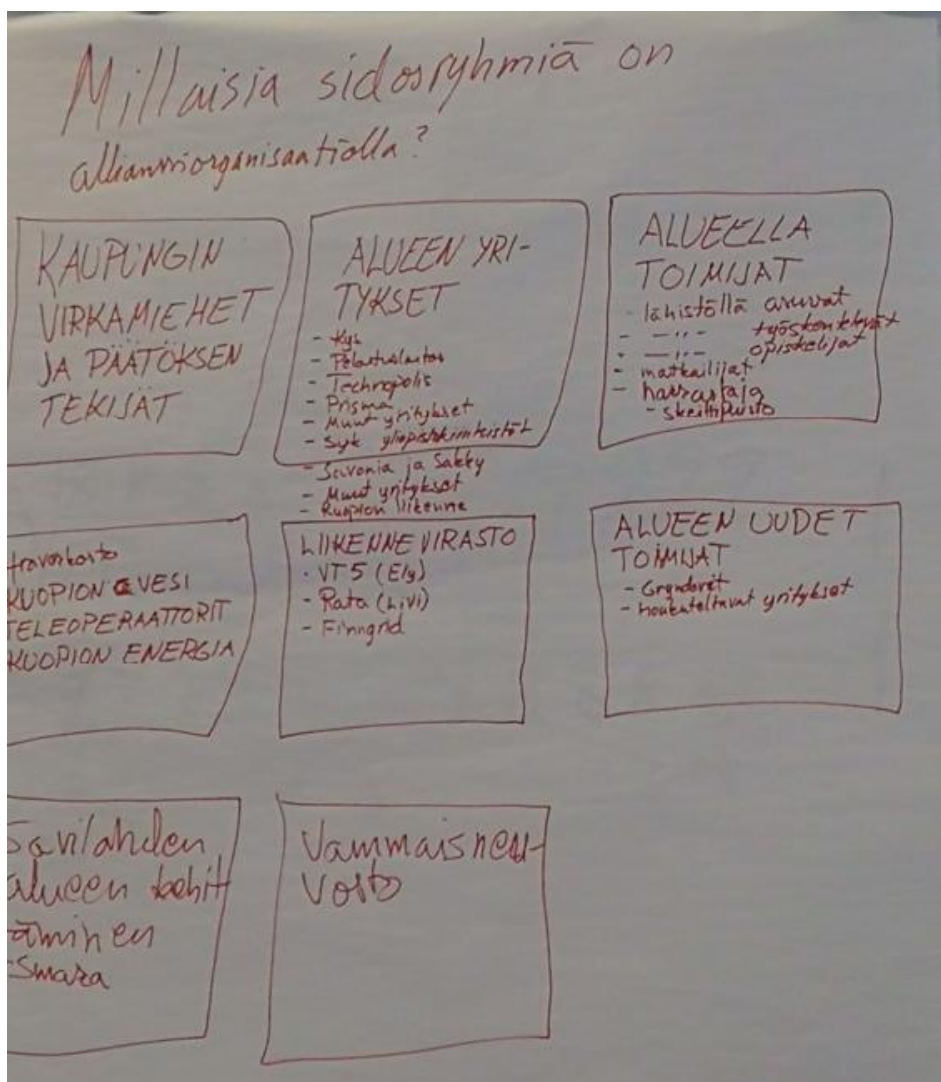 Millaisia sidosryhmiä on
allianssiorganisaatiolla?
KAUPUNGIN
VIRKAMIEHET
JA PÄÄTÖKSEN
TEKIJÄT
ALUEEN YRI-
TYKSET
- Kys
- Pelastuslaitos
- Technopolis
- Prisma
- Muut yritykset
- Syk yliopistokiinteistöt
- Savonia ja Sakky
- Muut yritykset
- Kuopion liikenne
ALUEELLA
TOIMIJAT
- lähistöllä asuvat
- —,,— työskentelevät
- —,,— opiskelijat
- matkailijat
- harrastaja
- skeittipuisto
KUOPION VESI
TELEOPERAATTORIT
KUOPION ENERGIA
LIIKENNEVIRASTO
- VT5 (Ely)
- Rata (Livi)
- Finngrid
ALUEEN UUDET
TOIMIJAT
- Grynderit
- houkuteltavat yritykset
Savilahden
alueen kehit
täminen
Vammaisneu-
vosto